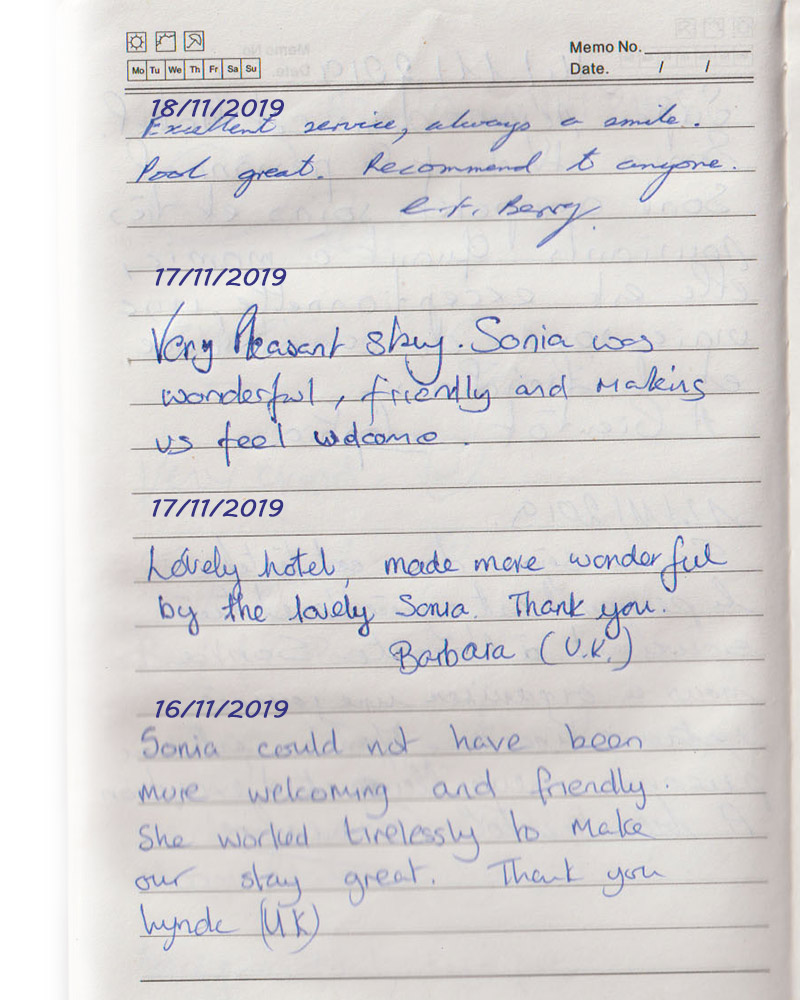 Memo No.
Mo Tu We Th Fr Sa Su
Date. / /
18/11/2019
Excellent service, always a smile.
Pool great. Recommend to anyone.
Berry.
17/11/2019
Very Pleasant stay. Sonia was
wonderful, friendly and making
us feel welcome.
17/11/2019
Lovely hotel, made more wonderful
by the lovely Sonia. Thank you.
Barbara (U.K.)
16/11/2019
Sonia could not have been
more welcoming and friendly.
She worked tirelessly to make
our stay great. Thank you
(UK)